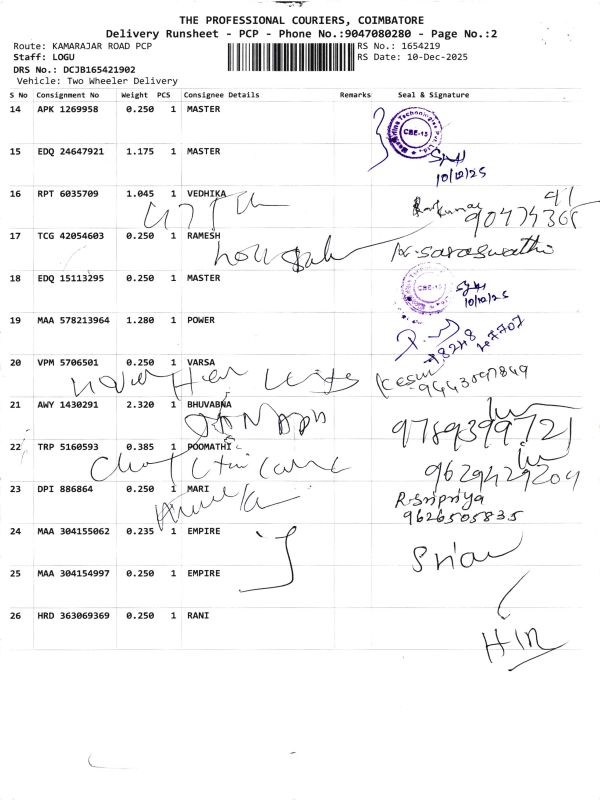 THE PROFESSIONAL COURIERS, COIMBATORE
Delivery Runsheet - PCP - Phone No.:9047080280 - Page No.:2
Route: KAMARAJAR ROAD PCP RS No.: 1654219
Staff: LOGU RS Date: 10-Dec-2025
DRS No.: DCJB165421902
Vehicle: Two Wheeler Delivery
S No Consignment No Weight PCS Consignee Details Remarks Seal & Signature
14 APK 1269958 0.250 1 MASTER
CBE-15
10/12/25
15 EDQ 24647921 1.175 1 MASTER
16 RPT 6035709 1.045 1 VEDHIKA
17 TCG 42054603 0.250 1 RAMESH
saraswathi
18 EDQ 15113295 0.250 1 MASTER
CBE-15
10/12/25
19 MAA 578213964 1.280 1 POWER
20 VPM 5706501 0.250 1 VARSA
21 AWY 1430291 2.320 1 BHUVABNA
9789399721
22 TRP 5160593 0.385 1 POOMATHI
9629429204
23 DPI 886864 0.250 1 MARI
R.Sripriya
9626505835
24 MAA 304155062 0.235 1 EMPIRE
25 MAA 304154997 0.250 1 EMPIRE
26 HRD 363069369 0.250 1 RANI